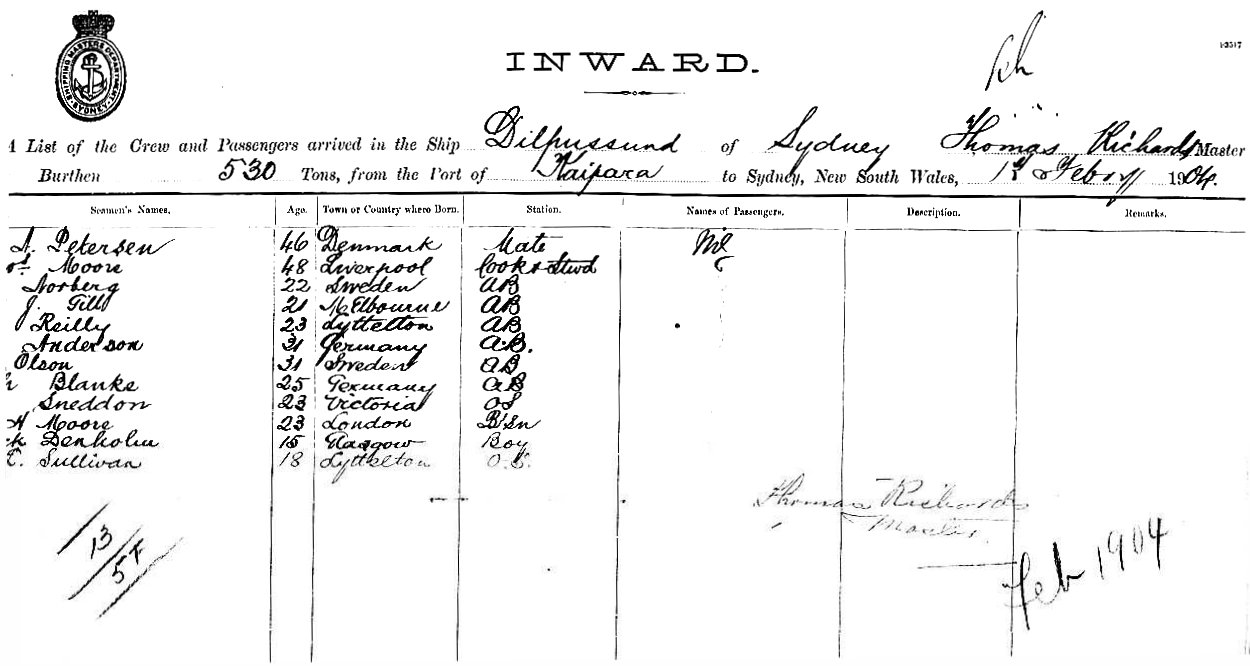 SHIPPING MASTERS DEPARTMENT SYDNEY
1-2517
INWARD.
A List of the Crew and Passengers arrived in the Ship Dilpussund of Sydney Thomas Richards Master
Burthen 530 Tons, from the Port of Kaipara to Sydney, New South Wales, 1st Febry 1904.
Seamen's Names. Age. Town or Country where Born. Station. Names of Passengers. Description. Remarks.
A. Petersen 46 Denmark Mate Nil
Moore 48 Liverpool Cook & Stwd
Norberg 22 Sweden AB
J. Gill 21 Melbourne AB
Reilly 23 Lyttelton AB
Anderson 31 Germany A.B.
Olson 31 Sweden AB
Blanke 25 Germany AB
Sneddon 23 Victoria OS
H Moore 23 London B'Sn
Denholm 15 Glasgow Boy
C. Sullivan 18 Lyttelton O.S.
Thomas Richards
Master.
13
Feb 1904